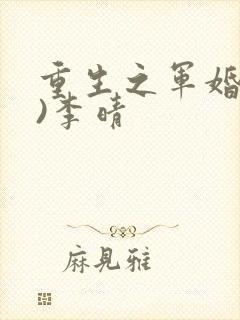 重生之军婚
)李晴
麻见雅